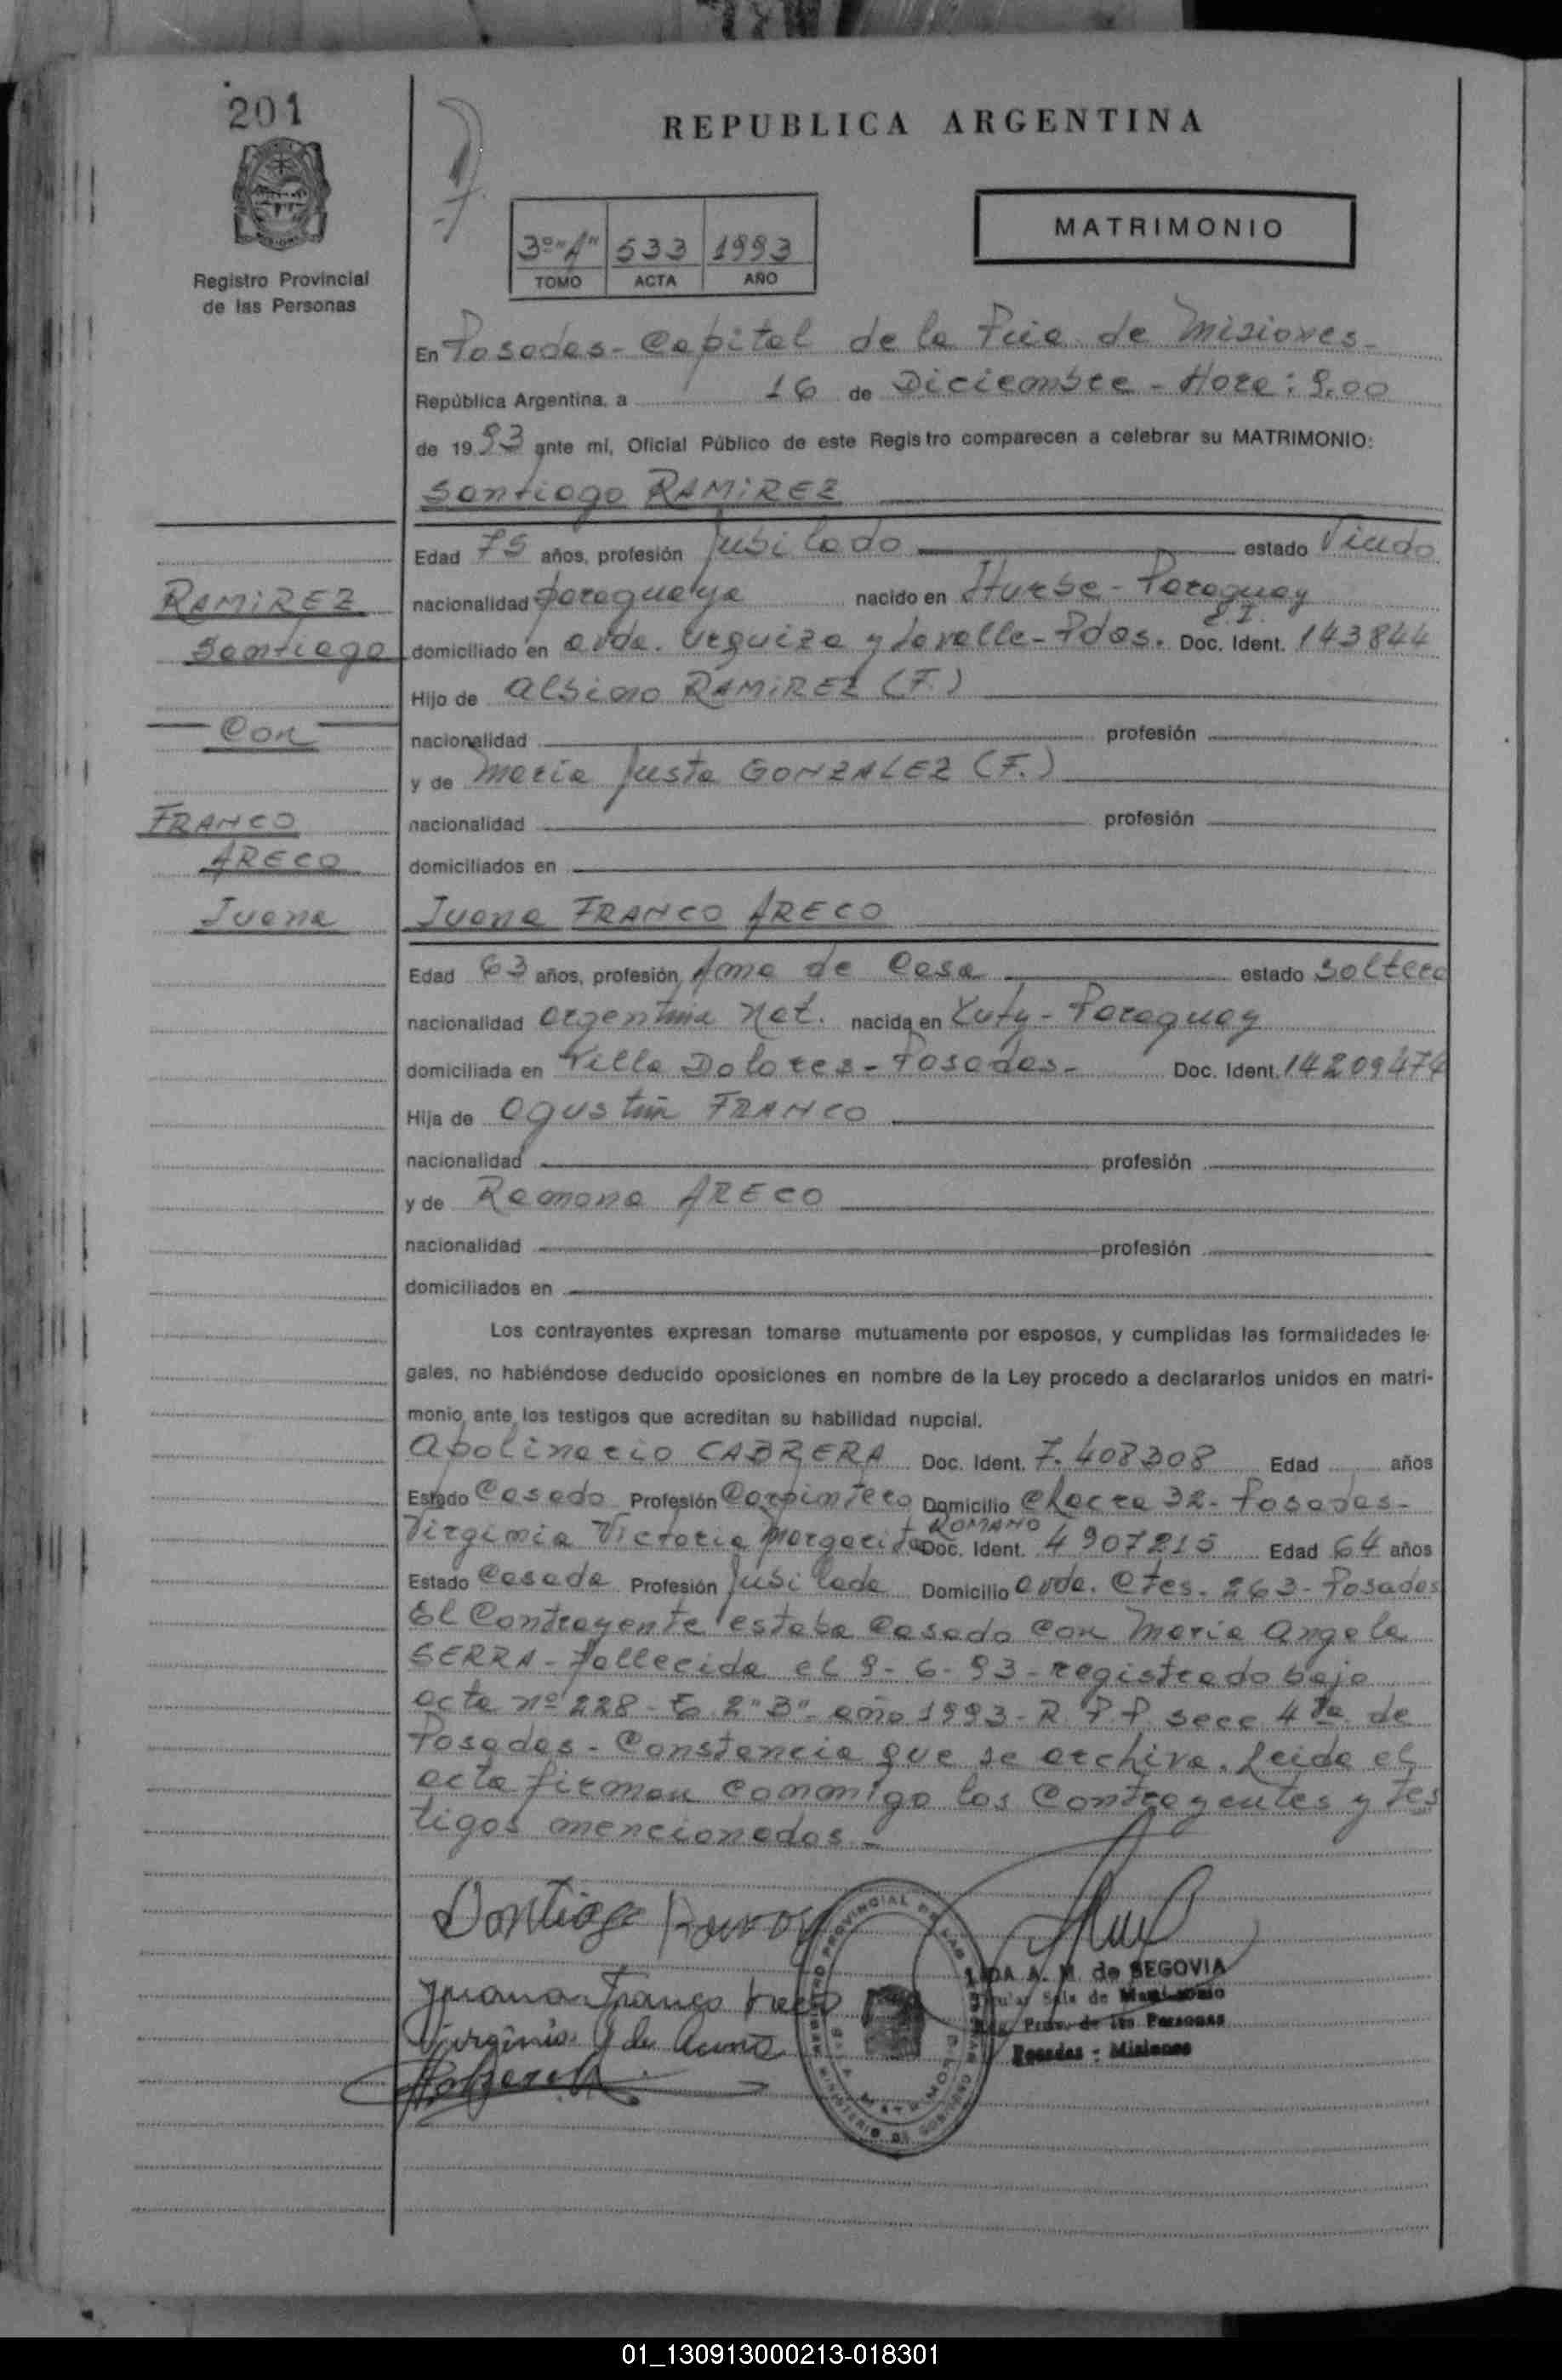 201
REPUBLICA ARGENTINA
MATRIMONIO
3º "A" 533 1993
TOMO ACTA AÑO
Registro Provincial
de las Personas
En Posadas - Capital de la Pcia. de Misiones -
República Argentina, a 16 de Diciembre - Hora: 9.00
de 1993 ante mí, Oficial Público de este Registro comparecen a celebrar su MATRIMONIO:
Santiago RAMIREZ
Edad 75 años, profesión Jubilado estado Viudo
RAMIREZ
nacionalidad paraguaya nacido en Iturbe - Paraguay
Santiago
domiciliado en avda. Urquiza y Lavalle - Pdas. Doc. Ident. C.I. 143844
Hijo de Albino RAMIREZ (F.)
Con
nacionalidad profesión
y de Maria Justa GONZALEZ (F.)
FRANCO
nacionalidad profesión
ARECO
domiciliados en
Juana
Juana FRANCO ARECO
Edad 63 años, profesión Ama de Casa estado soltera
nacionalidad argentina Nat. nacida en Yuty - Paraguay
domiciliada en Villa Dolores - Posadas - Doc. Ident. 14209474
Hija de Agustín FRANCO
nacionalidad profesión
y de Ramona ARECO
nacionalidad profesión
domiciliados en
Los contrayentes expresan tomarse mutuamente por esposos, y cumplidas las formalidades le-
gales, no habiéndose deducido oposiciones en nombre de la Ley procedo a declararlos unidos en matri-
monio ante los testigos que acreditan su habilidad nupcial.
Apolinario CABRERA Doc. Ident. 7.408308 Edad años
Estado Casado Profesión Carpintero Domicilio Chacra 32 - Posadas -
Virginia Victoria Margarita ROMANO Doc. Ident. 4907215 Edad 64 años
Estado Casada Profesión Jubilada Domicilio avda. Ctes. 263 - Posadas
El Contrayente estaba Casado con Maria Angela
SERRA - fallecida el 9-6-93 - registrado bajo
acta nº 228 - Tº 2 "B" - año 1993 - R.P.P. secc 4ta de
Posadas - Constancia que se archiva. Leida el
acta firman conmigo los Contrayentes y tes
tigos mencionados -
Santiago
Juana Franco Areco
Virginia
LIDA A. M. de SEGOVIA
Titular Sala de Matrimonio
Reg. Prov. de las Personas
Posadas - Misiones
REGISTRO PROVINCIAL DE LAS PERSONAS
SALA MATRIMONIO
MINISTERIO DE GOBIERNO
01_130913000213-018301